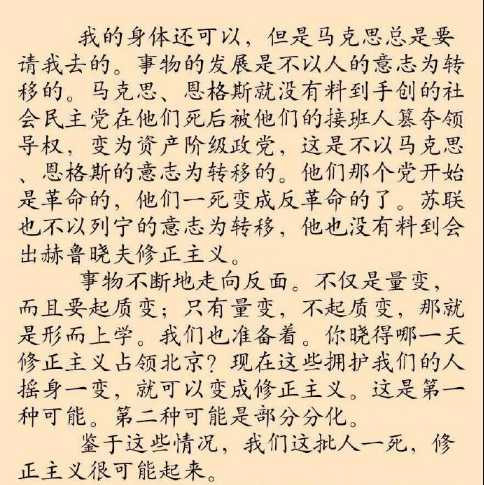 我的身体还可以，但是马克思总是要
请我去的。事物的发展是不以人的意志为转
移的。马克思、恩格斯就没有料到手创的社
会民主党在他们死后被他们的接班人篡夺领
导权，变为资产阶级政党，这是不以马克思
、恩格斯的意志为转移的。他们那个党开始
是革命的，他们一死变成反革命的了。苏联
也不以列宁的意志为转移，他也没有料到会
出赫鲁晓夫修正主义。
事物不断地走向反面。不仅是量变，
而且要起质变；只有量变，不起质变，那就
是形而上学。我们也准备着。你晓得哪一天
修正主义占领北京？现在这些拥护我们的人
摇身一变，就可以变成修正主义。这是第一
种可能。第二种可能是部分分化。
鉴于这些情况，我们这批人一死，修
正主义很可能起来。